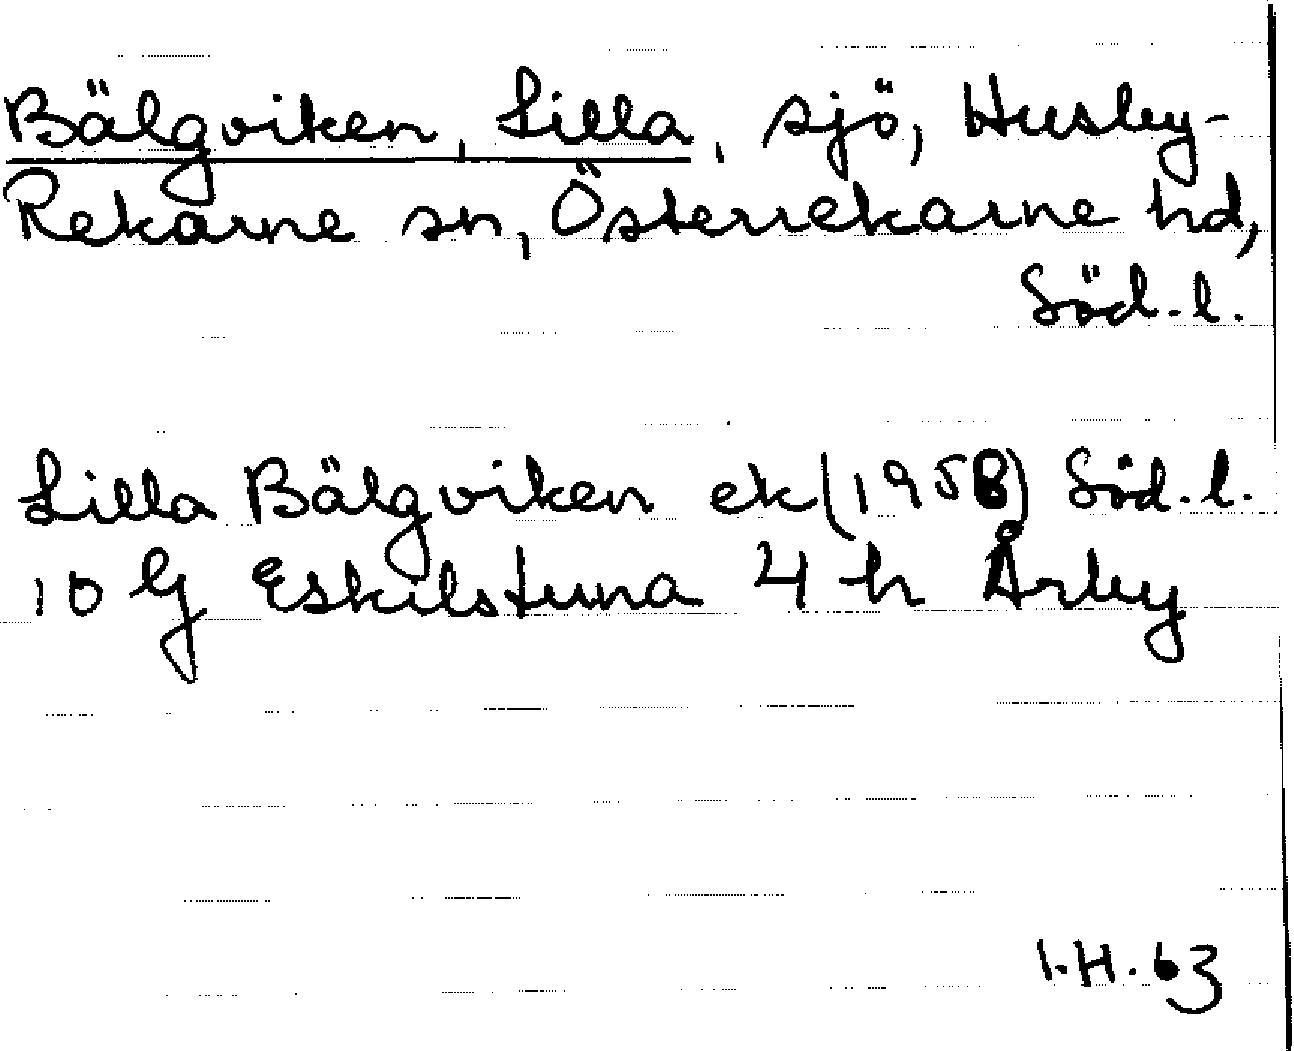 Bälgviken, Lilla, sjö, Husby-
Rekarne sn, Österrekarne hd,
Söd.l.
Lilla Bälgviken ek (1958) Söd.l.
10 G Eskilstuna 4 h Årby
I.H. 63